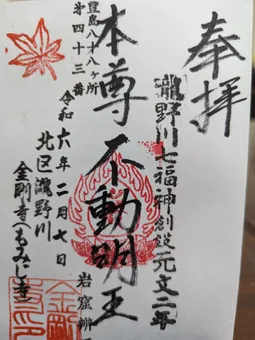 奉拝
瀧野川七福神創設元文二年
本尊 不動明王
岩窟辨
豊島八十八ヶ所
第四十三番
令和六年二月七日
北区瀧野川
金剛寺（もみじ寺）